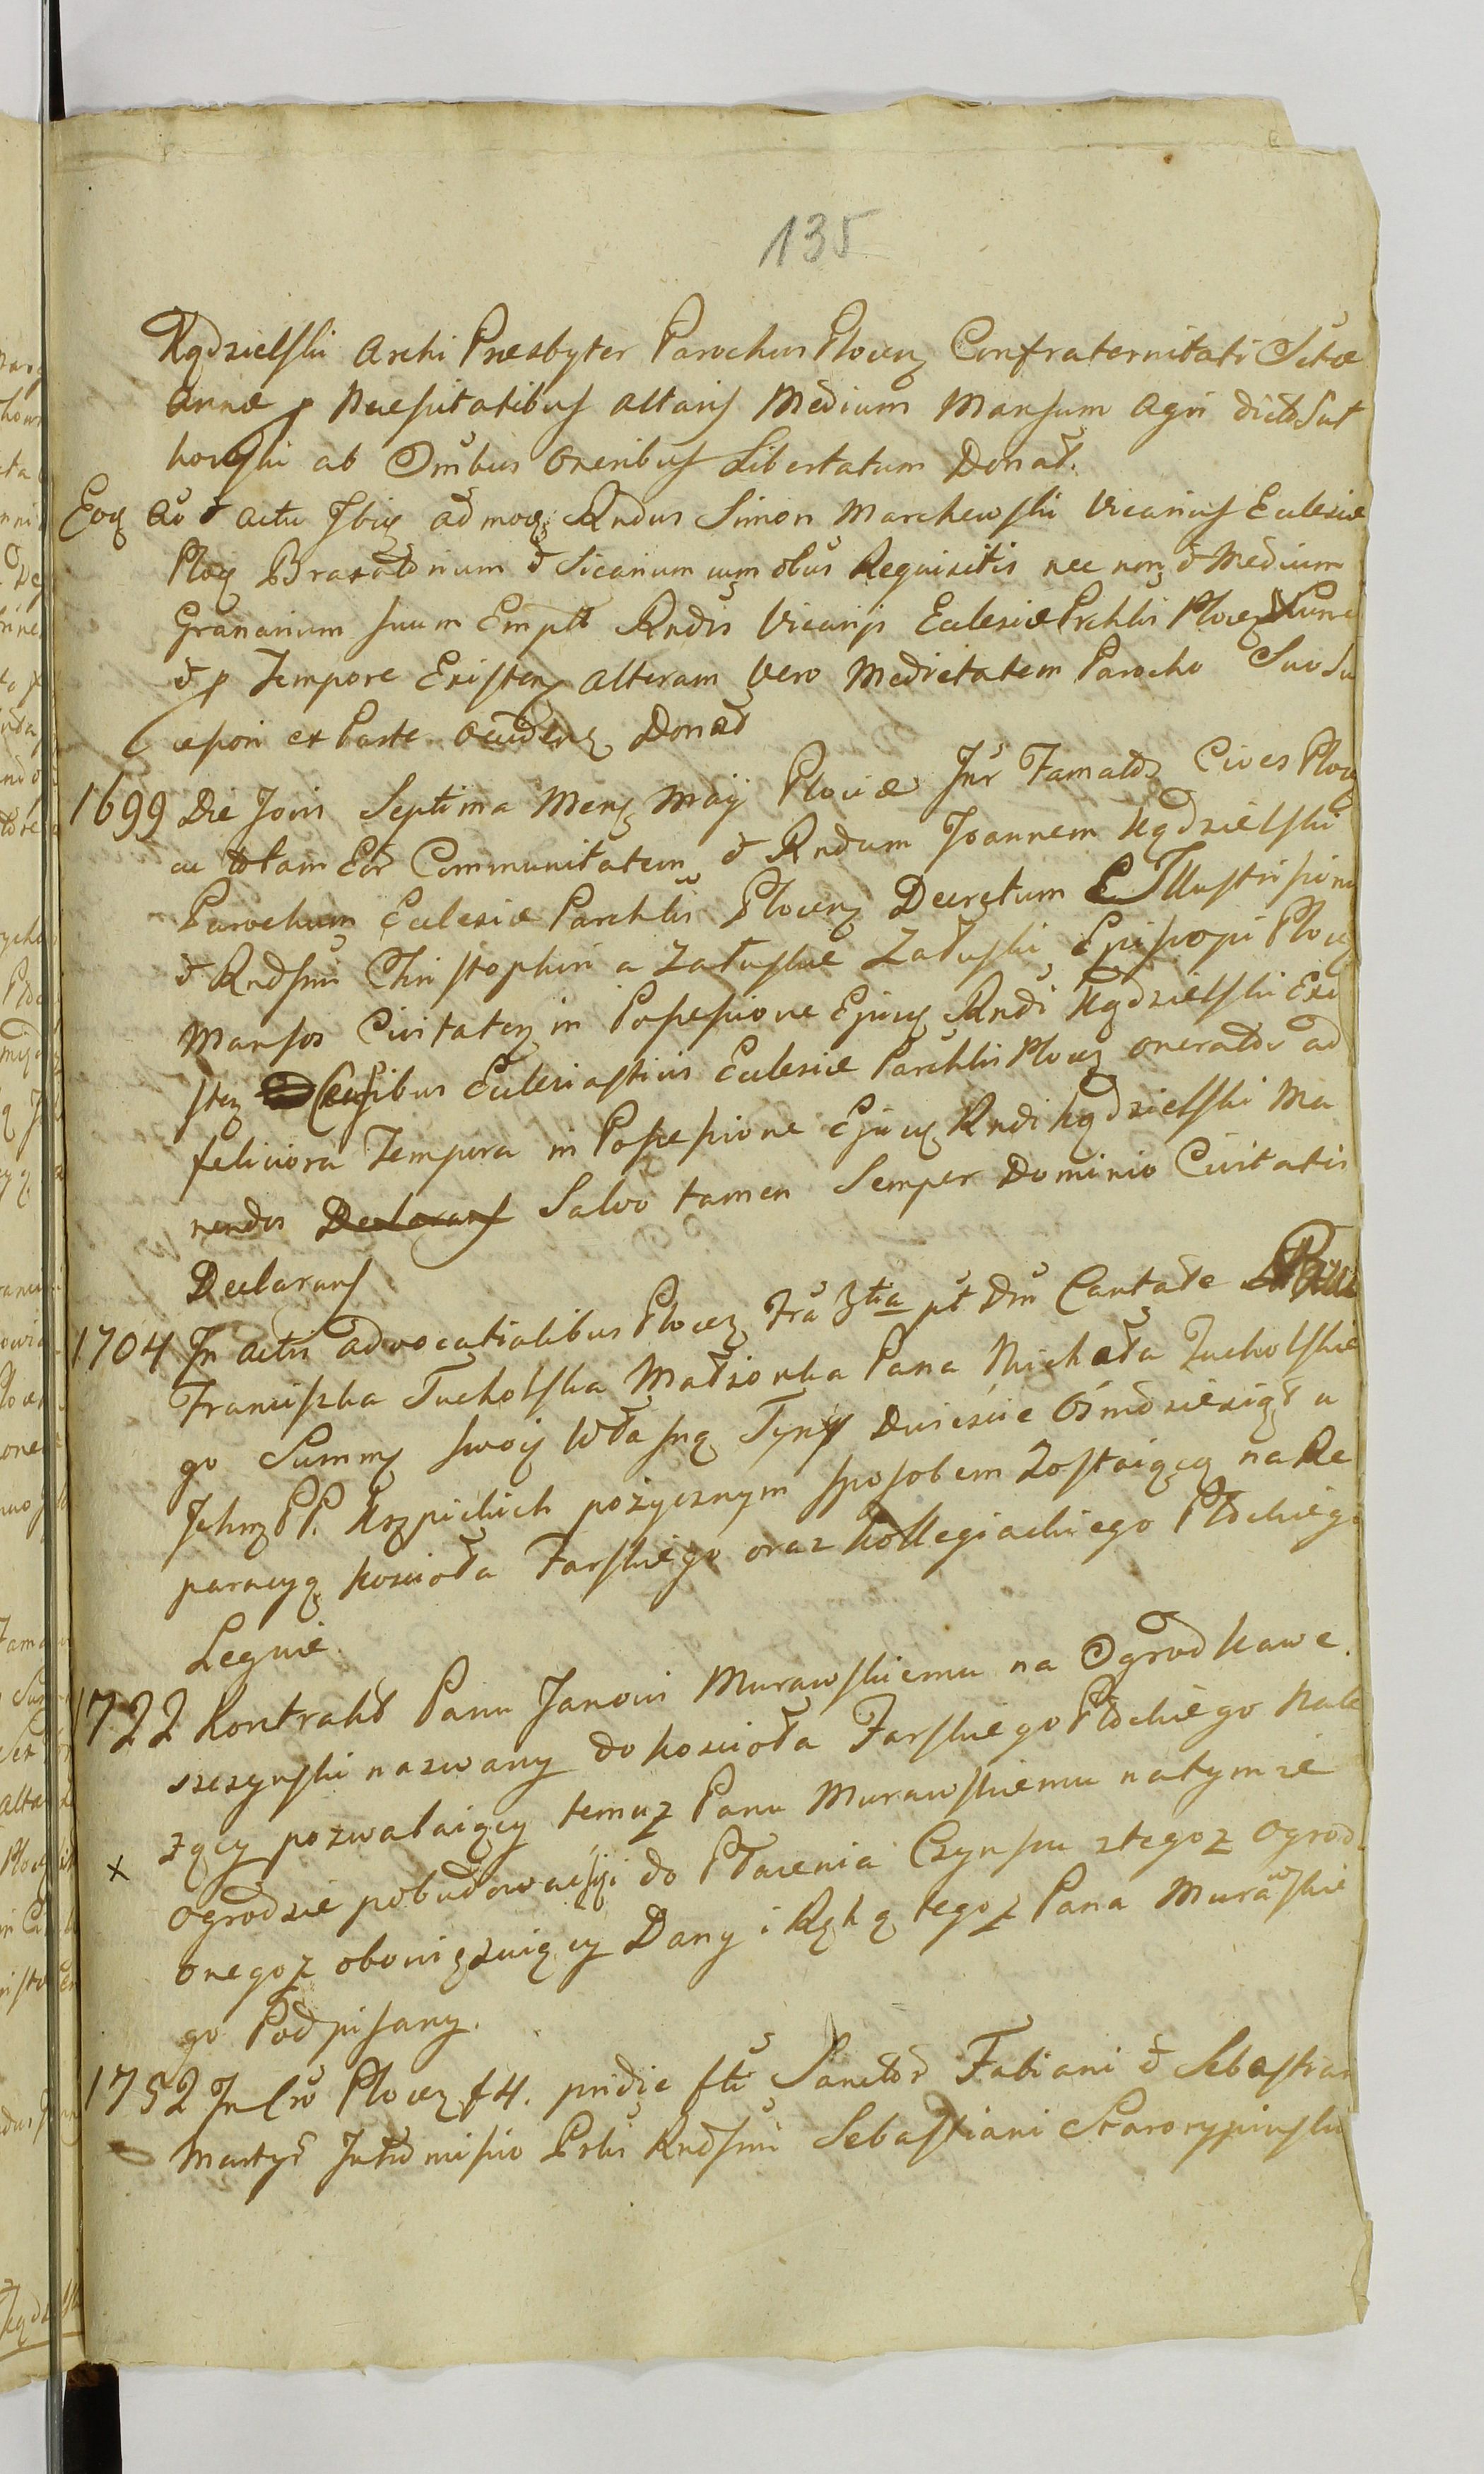 135
Kądzielski Archi Presbyter Parochus Plocen Confraternitati Sctæ
Annæ p Necessitatibus Altaris Medium Mansum Agri dicto Sut
kowski ab Omibus Oneribus Libertatum Donat.
Eoq Ao & Actu Ibiq admoq Rndus Simon Marchewski Vicarius Eclesiæ
Ploq Braxatorium & Sicarium cum obus Requisitis nec non & Medium
Granarium suum Empt Rndis Vicarijs Eclesiæ Prchlis Plocen Nunc
& p Tempore Existen Alteram Vero Medietatem Parocho Suo Su
cessori ex Parte Occiden Donat
1699 Die Jovis Septima Mens Maij Plociæ Intr Famatos Cives Ploc
ac totam Eor Communitatem & Rndum Joannem Kądzielski
Parochum Eclesiæ Parchlis Plocen Decretum Illustrissimi
& Rndssmi Christophori a Załuskie Załuski Episcopi Ploc
Mansos Civitaten in Possessione Ejusq Rndi Kądzielski Exi
sten Censibus Eclesiasticis Eclesiæ Parchlis Plocen oneratos ad
feliciora Tempora in Possessione Ejusq Rndi Kądzielski Ma
nendos Declarans Salvo tamen Semper Dominio Civitatis
Declarans
1704 In Actis Advocatialibus Plocen Fra 3tia pt Dm Cantate
Franciszka Tucholska Małżonka Pana Michała Tucholskie
go Summę swoię Własną Tynf Dwieście Ośmdziesiąt u
Jchm PP. Kczpickich pożycznym sposobem Zostaiącą na Re
paracyą kościoła Farskiego oraz Kollegiackiego Płockiego
Leguie.
1722 Kontrakt Panu Janowi Murawskiemu na Ogrod Kawe
szczynski nazwany do kościoła Farskiego Płockiego Nale
żący pozwalaiący temuz Panu Murawskiemu natymże
x Ogrodzie pobudować się i do Płacenia Czynszu ztegoz Ogrod
onegoz obowięzuiący Dany i Ręką tegoż Pana Murawskie
go Podpisany.
1752 In Cro Plocen f 4. pridie fti Sanctor Fabiani & Sebastian
Martyr Intromissio Prlis Rndssmi Sebastiani Starorypinski